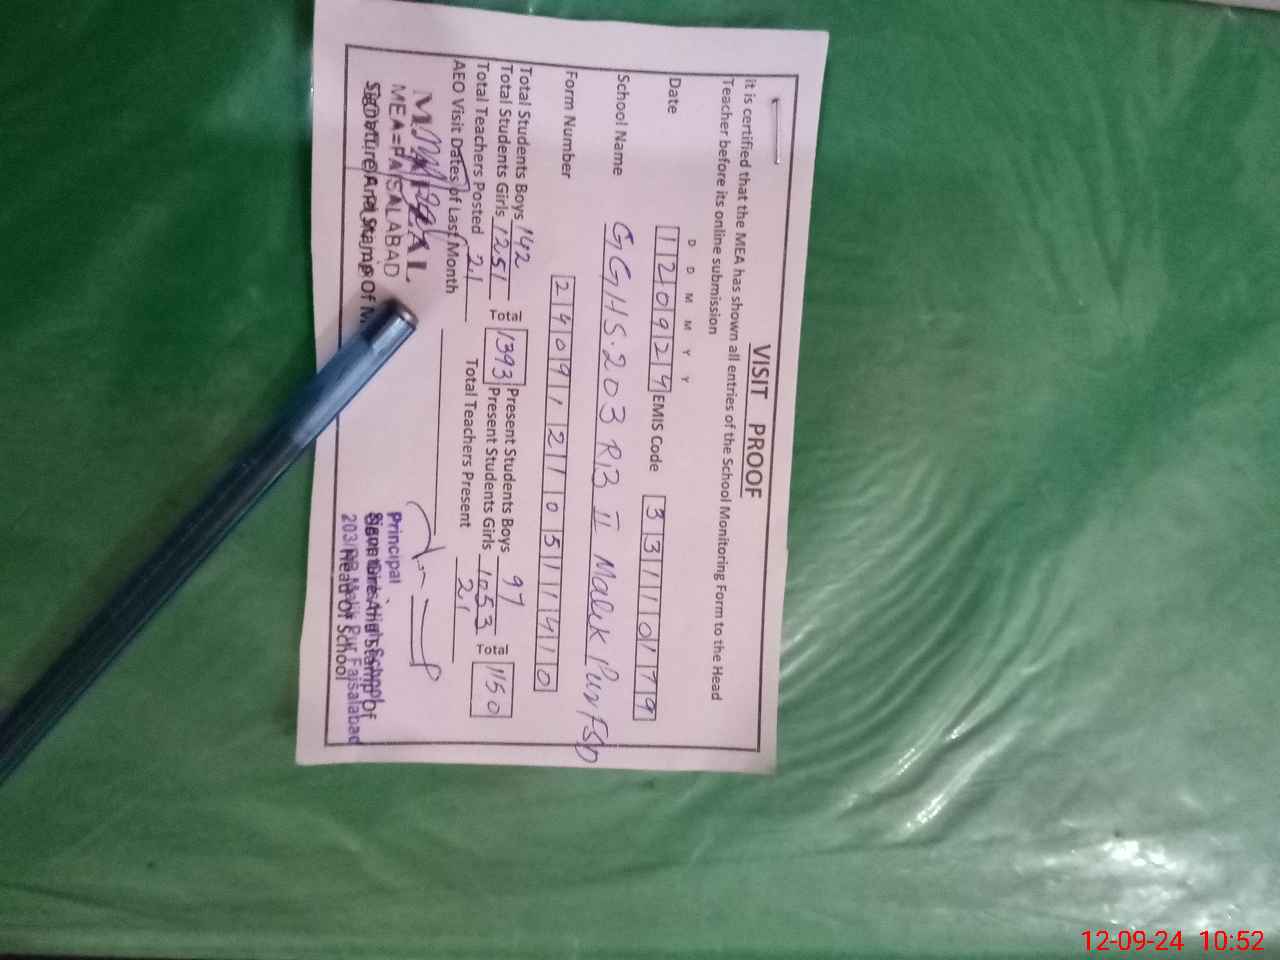 VISIT PROOF
it is certified that the MEA has shown all entries of the School Monitoring Form to the Head
Teacher before its online submission
D D M M Y Y
Date 120924 EMIS Code 33110179
School Name GGHS.203 RB II Malik Pur FSD
Form Number 2409121051140
Total Students Boys 142 Present Students Boys 97
Total Students Girls 1251 Total 1393 Present Students Girls 1053 Total 1150
Total Teachers Posted 21 Total Teachers Present 21
AEO Visit Dates of Last Month
MEA=FAISALABAD
Signature And Stamp Of
Principal
Signature And Stamp of
203/RB Malik Pur Faisalabad
Head Of School
12-09-24 10:52